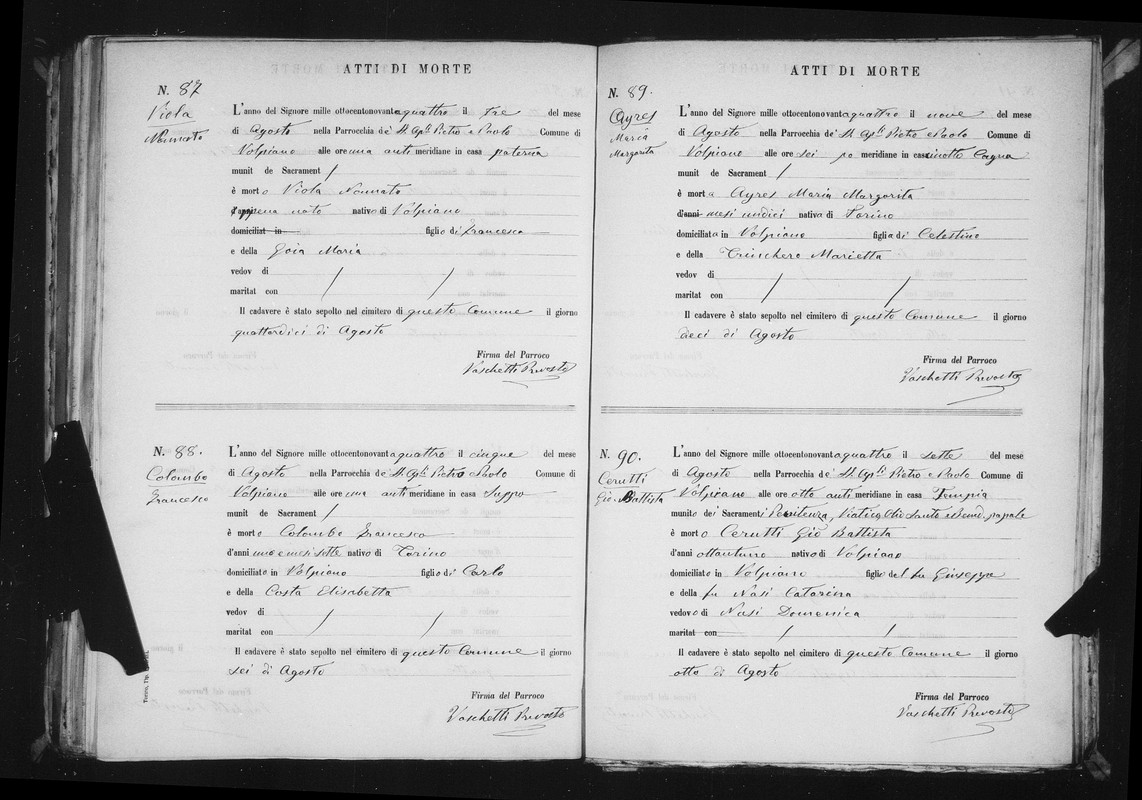 ATTI DI MORTE
N. 87
Viola
Nonnato
L'anno del Signore mille ottocentonovantaquattro il tre del mese
di Agosto nella Parrocchia de' SS. Apli Pietro e Paolo Comune di
Volpiano alle ore una anti meridiane in casa paterna
munit de Sacrament /
è morto Viola Nonnato
d'appena nato nativo di Volpiano
domiciliat in figlio di Francesco
e della Goia Maria
vedov di
maritat con
Il cadavere è stato sepolto nel cimitero di questo Comune il giorno
quattordici di Agosto
Firma del Parroco
Vaschetti Prevosto
N. 88.
Colombo
Francesco
L'anno del Signore mille ottocentonovantaquattro il cinque del mese
di Agosto nella Parrocchia de' SS. Apli Pietro e Paolo Comune di
Volpiano alle ore una anti meridiane in casa Suppo
munit de Sacrament /
è morto Colombo Francesco
d'anni uno e mesi sette nativo di Torino
domiciliato in Volpiano figlio di Carlo
e della Costa Elisabetta
vedov di
maritat con
Il cadavere è stato sepolto nel cimitero di questo Comune il giorno
sei di Agosto
Firma del Parroco
Vaschetti Prevosto
Torino, Tip.
ATTI DI MORTE
N. 89.
Ayres
Maria
Margarita
L'anno del Signore mille ottocentonovantaquattro il nove del mese
di Agosto nella Parrocchia de' SS. Apli Pietro e Paolo Comune di
Volpiano alle ore sei po meridiane in casinotto Cagna
munit de Sacrament /
è morta Ayres Maria Margarita
d'anni mesi undici nativa di Torino
domiciliata in Volpiano figlia di Celestino
e della Trinchero Marietta
vedov di
maritat con
Il cadavere è stato sepolto nel cimitero di questo Comune il giorno
dieci di Agosto
Firma del Parroco
Vaschetti Prevosto
N. 90.
Cerutti
Gio. Battista
L'anno del Signore mille ottocentonovantaquattro il sette del mese
di Agosto nella Parrocchia de' SS. Apli Pietro e Paolo Comune di
Volpiano alle ore otto anti meridiane in casa Tempia
munito dei Sacramenti Penitenza, Viatico, Olio Santo e Bened. papale
è morto Cerutti Gio Battista
d'anni ottantuno nativo di Volpiano
domiciliato in Volpiano figlio del fu Giuseppe
e della fu Nasi Catarina
vedovo di Nasi Domenica
maritat con
Il cadavere è stato sepolto nel cimitero di questo Comune il giorno
otto di Agosto
Firma del Parroco
Vaschetti Prevosto